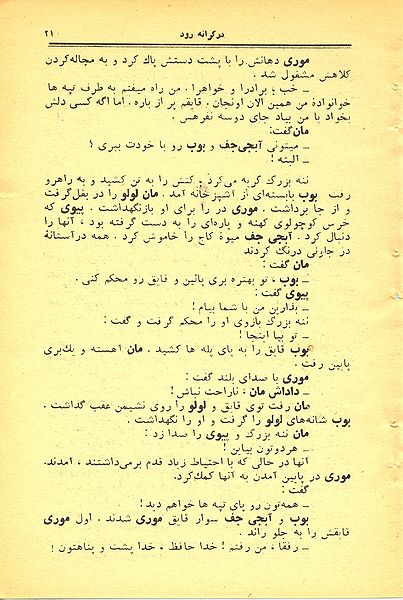 در کرانه رود ۲۱
موری دهانش را با پشت دستش پاك کرد و به مچاله کردن
کلاهش مشغول شد.
ـ خب؛ برادرا و خواهرا. من راه میفتم به طرف تپه ها
خوانوادهٔ من همین الان اونجان. قایقم پر از باره. اما اگه کسی دلش
بخواد با من بیاد جای دوسه نفرهس.
مان گفت:
ـ میتونی آبجی جف و بوب رو با خودت ببری؟
ـ البته!
ننه بزرگ گریه می کرد. کتش را به تن کشید و به راهرو
رفت. بوب بابسته ای از آشپزخانه آمد. مان لولو را در بغل گرفت
و از جا برداشت. موری در را برای او بازنگهداشت. پیوی که
خرس کوچولوی کهنه و پاره ای را به دست گرفته بود، آنها را
دنبال کرد. آبجی جف میوهٔ کاج را خاموش کرد. همه در آستانهٔ
در جارتی درنگ کردند
مان گفت:
ـ بوب، تو بهتره بری پائین و قایق رو محکم کنی.
پیوی گفت:
ـ بذارین من با شما بیام!
ننه بزرگ بازوی او را محکم گرفت و گفت:
ـ تو بپا اینجا!
بوب قایق را به پای پله ها کشید. مان آهسته و یك بری
پایین رفت.
موری با صدای بلند گفت:
ـ داداش مان، ناراحت نباش!
مان رفت توی قایق و لولو را روی نشیمن عقب گذاشت.
بوب شانه های لولو را گرفت و او را نگهداشت.
مان ننه بزرگ و پیوی را صدا زد:
ـ هردوتون بیاین!
آنها در حالی که با احتیاط زیاد قدم برمی داشتند، آمدند.
موری در پایین آمدن به آنها کمك کرد.
گفت:
ـ همه تون رو پای تپه ها خواهم دید!
بوب و آبجی جف سوار قایق موری شدند. اول موری
قایقش را به جلو راند.
ـ رفقا، من رفتم! خدا حافظ، خدا پشت و پناهتون!